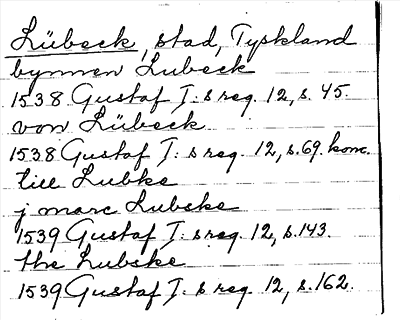 Lübeck, stad, Tyskland
bynnen Lubeck
1538 Gustaf I:s reg. 12, s. 45.
von Lübeck
1538 Gustaf I:s reg. 12, s. 69. konc.
till Lubke
j marc Lubske
1539 Gustaf I:s reg. 12, s. 143.
the Lubske
1539 Gustaf I:s reg. 12, s. 162.